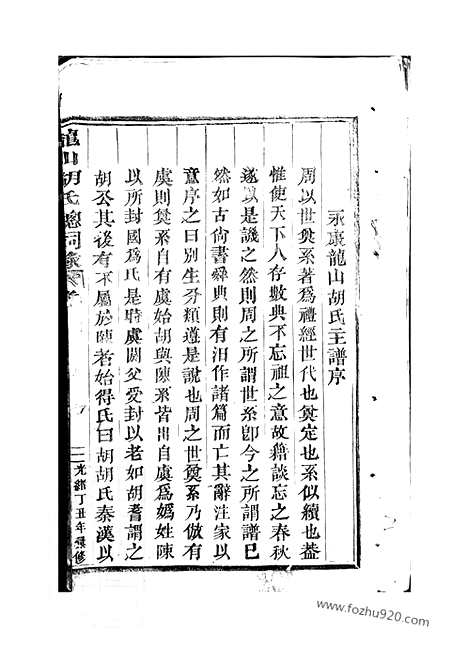 永康龍山胡氏主譜序
周以世奠系著爲禮經世代也奠定也系似續也葢
惟使天下人存數典不忘祖之意故籍談忘之春秋
遂以是譏之然則周之所謂世系卽今之所謂譜已
然如古尙書舜典則有汨作諸篇而亡其辭注家以
意序之曰別生分類遵是說也周之世奠系乃倣有
虞則奠系自有虞始胡與陳系皆出自虞爲嬀姓陳
以所封國爲氏是時虞閼父受封以老如胡耉謂之
胡公其後有不屬於陳者始得氏曰胡胡氏秦漢以
龍山胡氏總祠
光緖丁丑年重修
www.fozhu920.com